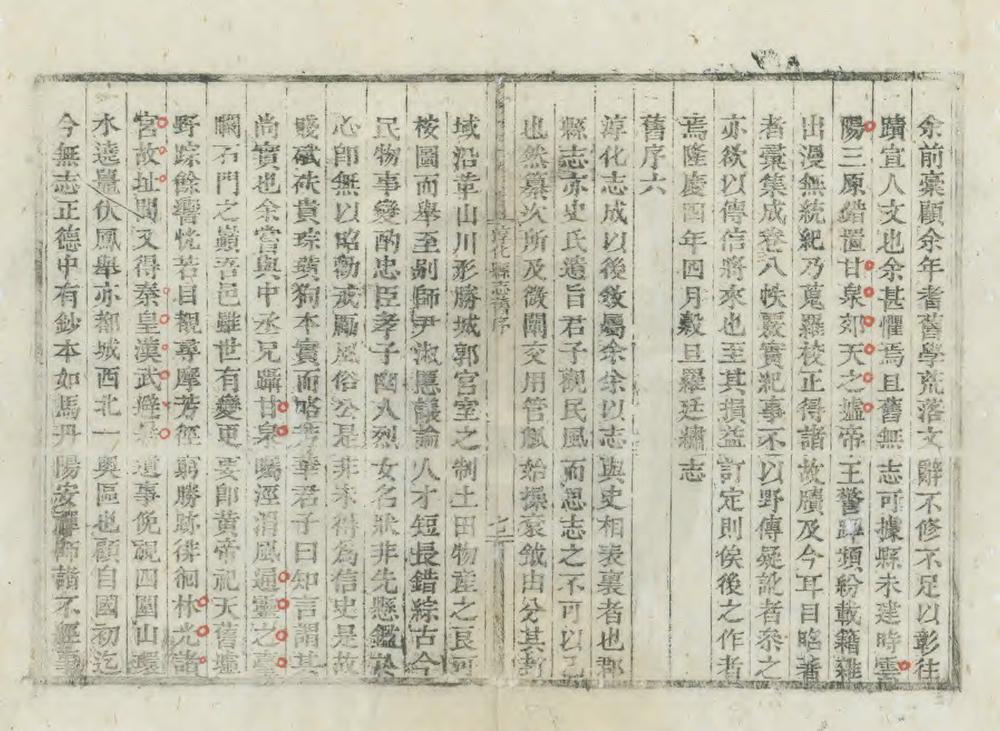 余前槀顧余年耆舊學荒落文辭不修不足以彰往
蹟宣人文也余甚懼焉且舊無志可據縣未建時雲
陽三原錯置甘泉郊天之墟帝王警蹕頻紛載籍雜
出漫無統紀乃蒐羅校正得諸故牘及今耳目睹著
者彙集成卷八帙覈實紀事不以野傳疑訛者叅之
亦欲以傳信將來也至其損益訂定則俟後之作者
焉隆慶四年四月穀旦羅廷繡志
舊序六
淳化志成以後敘屬余余以志與史相表裏者也郡
縣志亦史氏遺旨君子觀民風而思志之不可以已
也然纂次所及微闡交用管觚始操袞鉞由分其
淳化縣志舊序
域沿革山川形勝城郭宮室之制土田物產之良可
按圖而舉至剔師尹淑慝議論人才短長錯綜古今
民物事變酌忠臣孝子幽人烈女名狀非先懸鑑於
心卽無以昭勸戒勵風俗公是非未得為信史是故
賤碔砆貴琮璜狗本實而略芳華君子曰知言謂其
尚實也余嘗與中丞兄躡甘泉矚涇渭風通靈之臺
矙石門之巔吾邑雖世有變更要卽黃帝祀天舊墟
野踪餘響恍若目覩尋摩芳徑窮勝跡徘徊林光諸
宮故址間又得秦皇漢武避暑遺事俛視四圍山環
水遶鸞伏鳳舉亦都城西北一奧區也顧自國初迄
今無志正德中有鈔本如馬丹陽安禪師諸不經事